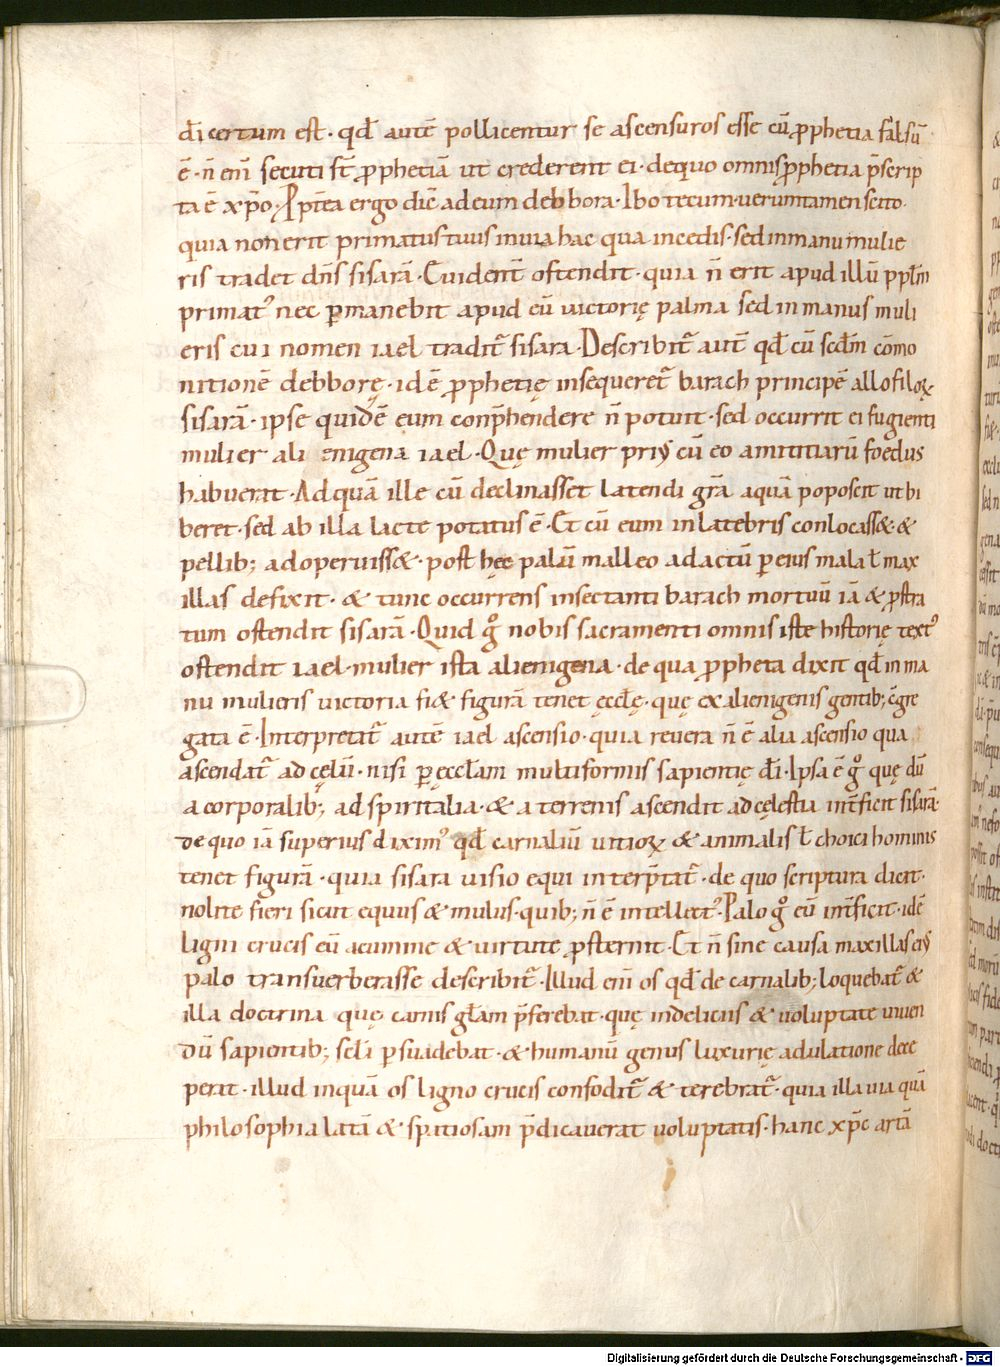 dī certum est· qđ autē pollicentur se ascensuros esse cū ꝓphetia falsū
ē· n̄ eni᷒ secuti st̄ ꝓphetiā ut crederent ei· dequo omnis ꝓphetia p̄scrip
ta ē xp̄o· Ꝓpt̄ea ergo dic̄ ad eum debbora· Ibo tecum· uerumtamen scito·
quia non erit primatus tuus in uia hac qua incedis· sed in manu mulie
ris tradet dn̄s sisarā· Euident̄ ostendit· quia n̄ erit apud illū ppl̄m
primat᷒ nec ꝑmanebit apud eū uictorię palma sed in manus muli
eris cui nomen iael tradit᷒ sisara· Describit᷒ aut̄ qđ cū scđm cōmo
nitionē debborę· id ē ꝓphetię insequeret᷒ barach principē allofiloꝝ
sisarā· ipse quidē eum conp̄hendere n̄ potuit· sed occurrit ei fugienti
mulier ali enigena iael· Quę mulier pri᷒ cū eo amititiarū foedus
habuerat· Ad quā ille cū declinasset latendi gr̄a aquā poposcit ut bi
beret· sed ab illa lacte potatus ē· Et cū eum in latebris conlocass&· &
pellib; adoperuiss&· post hęc palū malleo adactū ꝑ eius mala ł max
illas defixit· & tunc occurrens insectanti barach mortuū iā & ꝓstra
tum ostendit sisarā· Quid gͦ nobis sacramenti omnis iste historię text᷒
ostendit iael· mulier ista alienigena· de qua ꝓpheta dixit qđ in ma
nu mulieris uictoria fi& figurā tenet ęcclę· quę ex alienigenis gentib; c̄gre
gata ē· Interpretat᷒ autē iael ascensio· quia reuera n̄ ē alia ascensio qua
ascendat᷒ ad cęlū· nisi ꝑ ęccłam multiformis sapientię dī· Ipsa ē gͦ quę dū
a corporalib; ad spiritalia· & a terrenis ascendit ad cęlestia int̄ficit sisarā·
de quo iā superius dixim᷒ qđ carnaliū uitioꝝ & animalis ł choici hominis
tenet figurā· quia sisara uisio equi interp̄tat᷒· de quo scriptura dicit·
nolite fieri sicut equus & mulus· quib; n̄ ē intellect᷒· Palo gͦ eū int̄ficit· id ē
ligni crucis eū acumine & uirtute ꝓsternit· Et n̄ sine causa maxillas ei᷒
palo transuerberasse describit᷒· Illud eni᷒ os qđ de carnalib; loquebat᷒ &
illa doctrina quę carnis głam p̄ferebat· quę in deliciis & uoluptate uiuen
dū sapientib; sclī ꝑsuadebat· & humanū genus luxurię adulatione dece
perat· illud inquā os ligno crucis confodit᷒ & terebrat᷒· quia illa uia quā
philosophia latā & spatiosam p̄dicauerat uoluptatis· hanc xp̄c artā